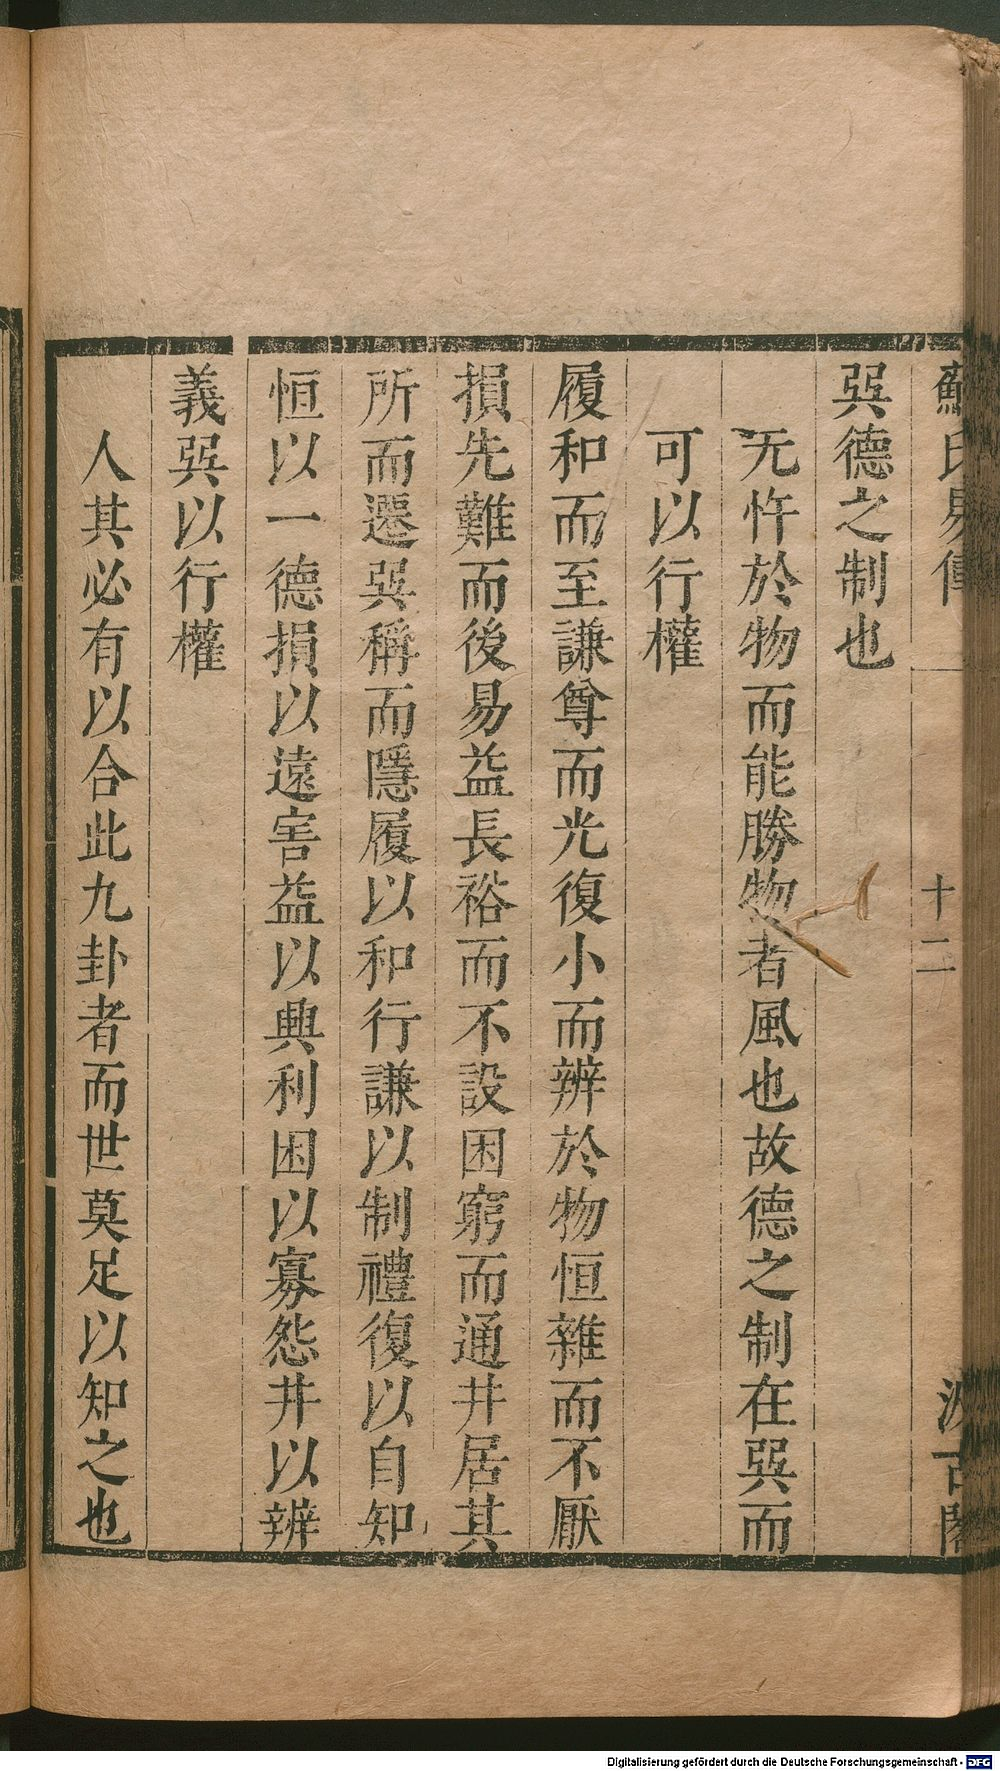 蘇氏易傳
十二
汲古閣
巽德之制也
无忤於物而能勝物者風也故德之制在巽而
可以行權
履和而至謙尊而光復小而辨於物恒雜而不厭
損先難而後易益長裕而不設困窮而通井居其
所而遷巽稱而隱履以和行謙以制禮復以自知
恒以一德損以遠害益以興利困以寡怨井以辨
義巽以行權
人其必有以合此九卦者而世莫足以知之也
Digitalisierung gefördert durch die Deutsche Forschungsgemeinschaft - DFG